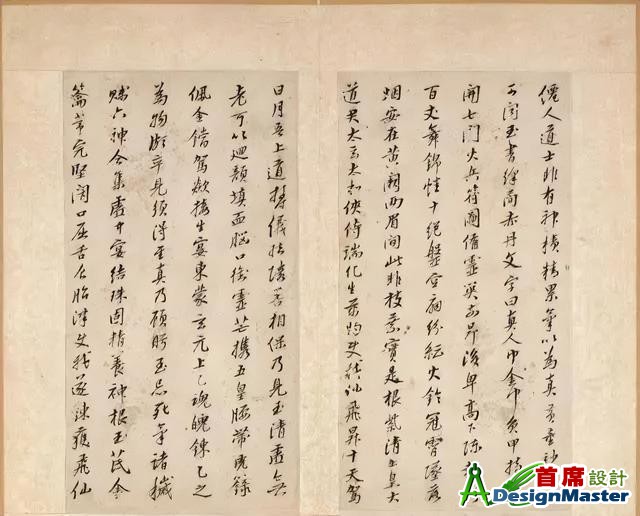 僊人道士非有神積精累氣以為真黃童妙
可聞玉書絳簡赤丹文字曰真人巾金巾負甲持
開七門火兵符圖備靈關前昂後卑高下陳
百丈舞錦幡十絕盤空扇紛紜火鈴冠霄隊落
烟安在黃闕兩眉間此非枝葉實是根紫清上皇大
道君太玄太和俠侍端化生萬物使我仙飛昇十天駕
日月吾上道鬱儀結璘善相保乃見玉清虛無
老可以廻顏填血腦口銜靈芒攜五皇腰帶虎籙
佩金鐺駕欻接生宴東蒙玄元上乙魂魄鍊乙之
為物叵卒見須得至真乃顧眄至忌死氣諸穢
賤六神合集虛中宴結珠固精養神根玉匙金
籥常完堅閉口屈舌食胎津使我遂鍊獲飛仙
首席設計
DesignMaster